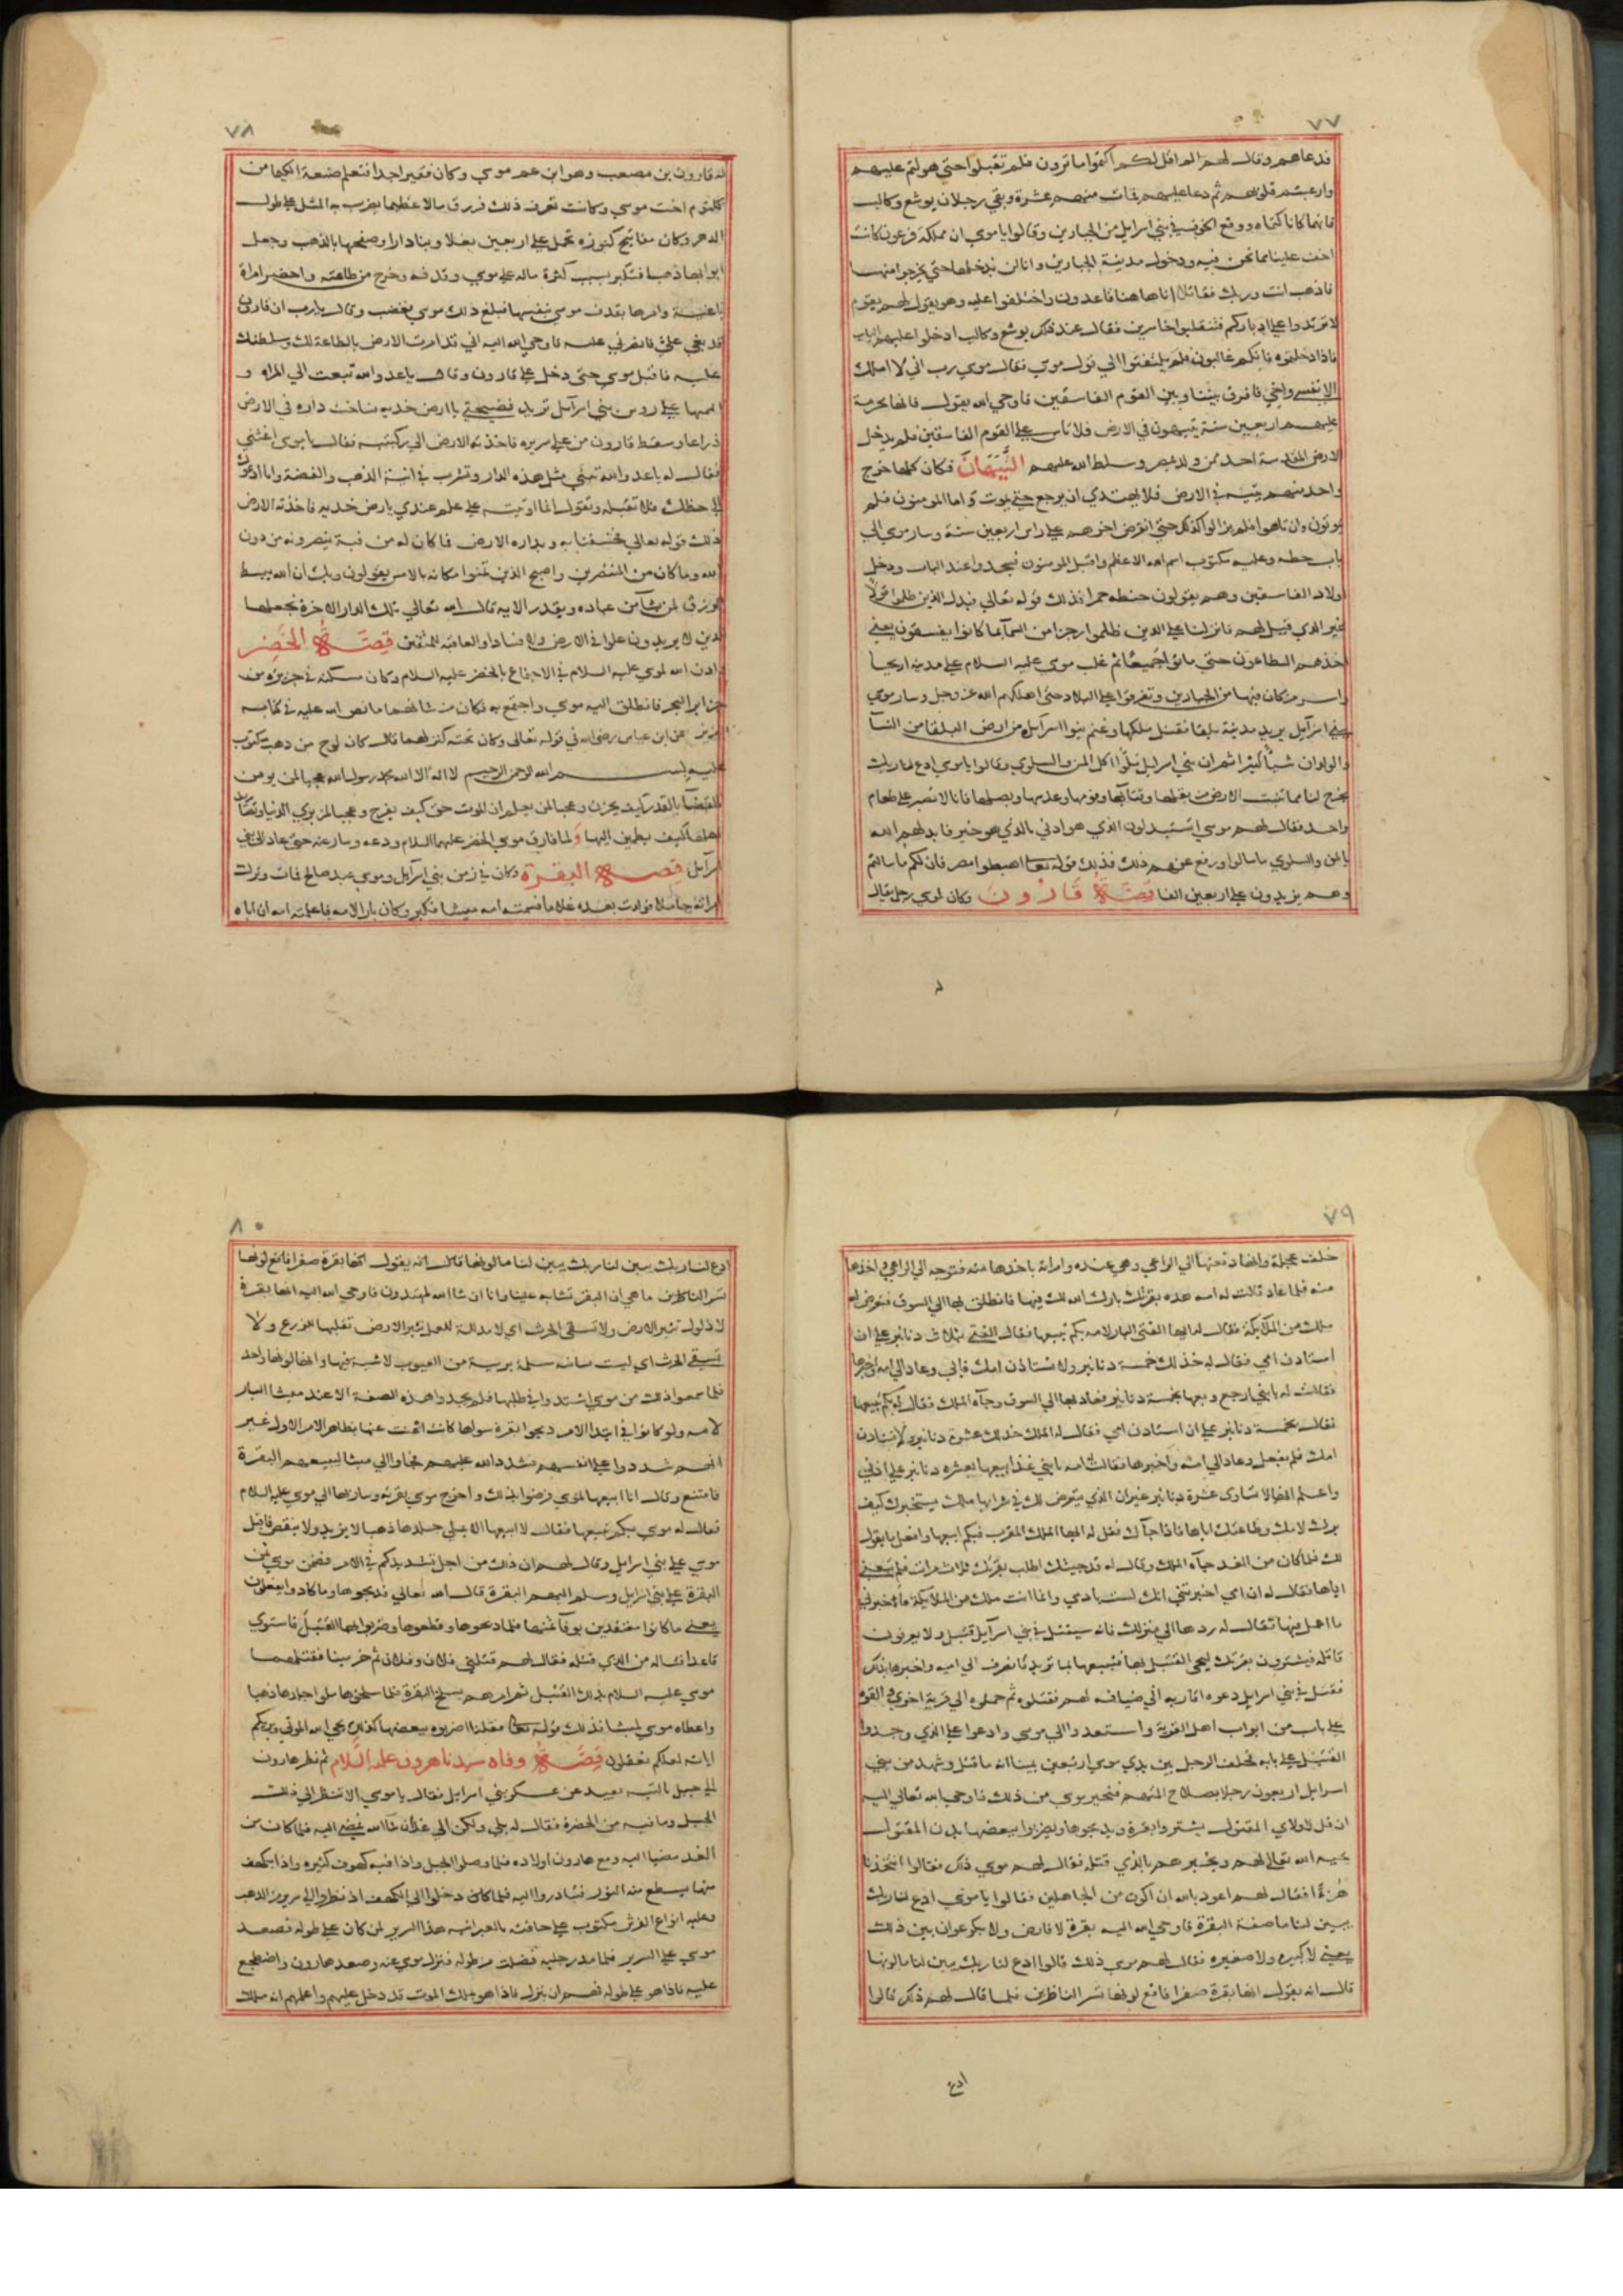 ٧٧
فدعاهم وقال لهم الم اقل لكم اكتموا ما ترون فلم تقبلوا حتي هولتم عليهم
وارعبتم قلوبهم ثم دعا عليهم فمات منهم عشرة وبقي رجلان يوشع وكالب
فانهما كانا كتماه ووقع الخوف في بني اسرايل من الجبارين وقالوا يا موسي ان مملكة فرعون كانت
اخف علينا مما نحن فيه ودخول مدينة الجبارين وانا لن ندخلها حتي يخرجوا منها
فاذهب انت وربك فقاتلا انا هاهنا قاعدون واختلفوا عليه وهو يقول لهم يقوم
لا ترتدوا علي ادباركم فتنقلبوا خاسرين فقال عند ذلك يوشع وكالب ادخلوا عليهم الباب
فاذا دخلتموه فانكم غالبون فلم يلتفتوا الي قول موسي فقال موسي رب اني لا املك
الا نفسي واخي فافرق بيننا وبين القوم الفاسقين فاوحي الله يقول فانها محرمة
عليهم اربعين سنة يتيهون في الارض فلا تاس علي القوم الفاسقين فلم يدخل
الارض المقدسة احد ممن ولد وسلط الله عليهم التَّيَهَانَ فكان كلما خرج
واحد منهم يتيه في الارض فلا يهتدي ان يرجع حتي يموت واما المومنون فلم
يموتون وان تاهوا فلم يزالوا كذلك حتي انقرض اخرهم علي راس اربعين سنة وسار موسي الي
باب حطه وعليه مكتوب اسم الله الاعظم واقبل المومنون فسجدوا عند الباب ودخل
اولاد الفاسقين وهم يقولون حنطه حمرا فذلك قوله تعالي فبدل الذين ظلموا قولا
غير الذي قيل لهم فانزلنا علي الذين ظلموا رجزا من السمآ بما كانوا يفسقون يعني
اخذهم الطاعون حتي ماتوا جَميعًا ثم غلب موسي عليه السلام علي مدينه اريحا
واسر من كان فيها من الجبارين وتفرقوا علي البلاد حتي اهلكهم الله عز وجل وسار موسي
ببني اسرايل يريد مدينة بلقا فقتل ملكها وغنم بنوا اسرايل من ارض البلقا من النسآ
والولدان شيأ كثيرا ثم ان بني اسرايل مَلّوا اكل المن والسلوي وقالوا يا موسي ادع لنا ربك
يخرج لنا مما تنبت الارض من بقلها وقثآئها وفومها وعدسها وبصلها فانا لا نصبر علي طعام
واحد فقال لهم موسي اتستبدلون الذي هو ادني بالذي هو خير فابدلهم الله
بالمن والسلوي ما سالوا ورفع عنهم ذلك فذلك قوله تعا اهبطوا مصر فان لكم ما سالتم
وهم يزيدون علي اربعين الفا قصَّة قَارُونَ وكان لموسي رجل يقال
٧٨
له قارون بن مصعب وهو ابن عم موسي وكان فقيرا جدا فتعلم صنعة الكيميا من
كلثوم اخت موسي وكانت تعرف ذلك فرزق مالا عظيما يضرب به المثل علي طول
الدهر وكان مفاتيح كنوزه تحمل علي اربعين بغلا وبنا دارا وصفحها بالذهب وجعل
ابوابها ذهبا فتكبر بسبب كثرة ماله علي موسي وقذفه وخرج من طاعته واحضر امراة
باغيـة وامرها بقذف موسي بنفسها فبلغ ذلك موسي فغضب وقال يا رب ان قارون
قد بغي عليّ فانصرني عليه فاوحي الله اليه اني قد امرت الارض بالطاعة لك وسلطتك
عليه فاقبل موسي حتي دخل علي قارون وقال يا عدو الله تبعث الي المراه و
علي روس بني اسرآيل تريد فضيحتي يا ارض خذيه فساخت داره في الارض
ذراعا وسقط قارون من علي سريره فاخذته الارض الي ركبتيه فقال يا موسي اغثني
فقال له يا عدو الله تبني مثل هذه الدار وتشرب في انية الذهب والفضة وانا ادعوك
الي حظك فلا تقبله وتقول انما اوتيته علي علم عندي يا ارض خذيه فاخذته الارض
فذلك قوله تعالي فخسفنا به وبداره الارض فما كان له من فية ينصرونه من دون
الله وما كان من المنتصرين واصبح الذين تمنوا مكانه بالامس يقولون ويك ان الله يبسط
الرزق لمن يشآ من عباده ويقدر الايه قال الله تعالي تلك الدار الاخرة نجعلها
للذين لا يريدون علوا في الارض ولا فسادا والعاقبه للمتقين قِصَّـة الخَضِر
واذن الله لموسي عليه السلام في الاجتماع بالخضر عليه السلام وكان مسكنه في جزيره من
جزاير البحر فانطلق اليه موسي واجتمع به فكان من شانهما ما نص الله عليه في كتابه
العزيز عن ابن عباس رضي الله في قوله تعالي وكان تحته كنز لهما قال كان لوح من ذهب مكتوب
عليه بسم الله الرحمن الرحيم لا اله الا الله محمد رسول الله عجبا لمن يومن
بالقضآ بالقدر كيف يحزن وعجبا لمن يعلم ان الموت حق كيف يفرح وعجبا لمن يري الدنيا وتقلبها
باهلها كيف يطمين اليها ولما فارق موسي الخضر عليهما السلام ودعه وسار عنه حتي عاد الي بني
اسرآيل قصـة البقـرة وكان في زمن بني اسرآيل وموسي عبد صالح فمات وترك
امراته حاملا فولدت بعده غلاما فسمته امه ميشا فكبر وكان بارا لامه فاعلمته امه ان اباه
٧٩
خلف عجلة وانها دفعتها الي الراعي وهي عنده وامراته باخذها منه فتوجه الي الراعي واخذها
منه فلما عاد قالت له امه هذه بقرتك بارك الله لك فيها فانطلق بها الي السوق فتعرض له
ملك من الملايكة فقال له ايها الفتي البار لامه بكم تبيعها فقال الفتي بثلاث دنانير علي ان
استاذن امي فقال له خذ لك خمسة دنانير ولا تستاذن امك فابي وعاد الي امه واخبرها
فقالت له يا بني ارجع وبعها بخمسة دنانير فعاد بها الي السوق وجآه الملك فقال له بكم تبيعها
فقال بخمسة دنانير علي ان استاذن امي فقال له الملك خذ لك عشرة دنانير ولا تستاذن
امك فلم يفعل وعاد الي امه واخبرها فقالت امه يا بني غدا بيعها بعشره دنانير علي اذني
واعلم انها لا تساوي عشرة دنانير غير ان الذي يتعرض لك في شرايها ملك يستخبرك كيف
برك لامك وطاعتك اياها فاذا جآك فقل له ايها الملك المقرب فبكم ابيعها وافعل ما يقول
لك فلما كان من الغد جآه الملك وقال له قد جيتك اطلب بقرتك ثلاث مرات فلم تبعني
اياها فقال له ان امي اخبرتني انك لست بادمي وانما انت ملك من الملايكة فاخبرني
ما اعمل فيها فقال له ردها الي منزلك فانه سيقتل في بني اسرآيل قتيل ولا يعرفون
قاتله فيشترون بقرتك ليحي القتيل بها فتبيعها بما تريد فانصرف الي امه واخبرها بذلك
فقتل في بني اسرايل دعوه اقاربه الي ضيافه لهم فقتلوه ثم حملوه الي قرية اخري والقوه
علي باب من ابواب اهل القرية واستعدوا الي موسي وادعوا علي الذي وجدوا
القتيل علي بابه فحلف الرجل بين يدي موسي اربعين يمينا انه ما قتل وشهد من بني
اسرايل اربعون رجلا بصلاح المتهم فتحير موسي من ذلك فاوحي الله تعالي اليه
ان قل لاولاي المقتول يشتروا بقرة ويذبحوها ويضربوا ببعضها بدن المقتول
يحييه الله تعالي لهم ويخبرهم بالذي قتله فقال لهم موسي ذلك فقالوا اتتخذنا
هُزءًا فقال لهم اعوذ بالله ان اكون من الجاهلين فقالوا يا موسي ادع لنا ربك
يبين لنا ما صفة البقرة فاوحي الله اليه بقرة لا فارض ولا بكر عوان بين ذلك
يعني لا كبيره ولا صغيره فقال لهم موسي ذلك قالوا ادع لنا ربك يبين لنا ما لونها
قال انه يقول انها بقرة صفرا فاقع لونها تسر الناظرين فلما قال لهم ذلك قالوا
ادع
٨٠
ادع لنا ربك يبين لنا ربك يبين لنا ما لونها قال انه يقول انها بقرة صفرا فاقع لونها
تسر الناظرين ما هي ان البقر تشابه علينا وانا ان شا الله لمهتدون فاوحي الله اليه انها بقرة
لا ذلول تثير الارض ولا تسقي الحرث اي لا مدالة للعمل تثير الارض تقلبها للزرع ولا
تسقي الحرث اي ليست سانيه مسلمة برية من العيوب لا شية فيها وانها لونها واحد
فلما سمعوا ذلك من موسي اشتدوا في طلبها فلم يجدوا هذه الصفة الا عند ميشا البار
لامه ولو كانوا في ابتدا الامر ذبحوا بقرة سواها كانت اغنت عنها بظاهر الامر الاول غير
انهم شددوا علي انفسهم فشدد الله عليهم فجاوا الي ميشا ليبيعهم البقرة
فامتنع وقال انا ابيعها لموسي فرضوا بذلك واخرج موسي بقرته وسار بها الي موسي عليه السلام
فقال له موسي بكم تبيعها فقال لا ابيعها الا بملي جلدها ذهبا لا يزيد ولا ينقص فاقبل
موسي علي بني اسرايل وقال لهم ان ذلك من اجل تشديدكم في الامر فضمن موسي ثمن
البقرة علي بني اسرايل وسلم اليهم البقرة قال الله تعالي فذبحوها وما كادوا يفعلون
يعني ما كانوا معتقدين بوفآ ثمنها فلما ذبحوها وقطعوها وضربوا بها القتيل فاستوي
قاعدا فساله من الذي قتله فقال لهم قتلني فلان وفلان ثم خر ميتا فقتلهما
موسي عليه السلام بذلك القتيل ثم امرهم بسلخ البقرة فلما سلخوها ملوا جلدها ذهبا
واعطاه موسي لميشا فذلك قوله تعا فقلنا اضربوه ببعضها كذلك يحي الله الموتي ويريكم
اياته لعلكم تعقلون قصَّـة وفاه سيدنا هرون عليه السَّلام ثم نظر هارون
الي جبل بالتيه بعيد عن عسكر بني اسرايل فقال يا موسي الا تنظر الي ذلك
الجبل وما فيه من الخضرة فقال له بلي ولكن الي غدا ان شآ الله نمضي اليه فلما كان من
الغد مضيا اليه ومع هارون اولاده فلما وصلوا الجبل واذا فيه كهوف كثيره واذا بكهف
منها يسطع منه النور فبادروا اليه فلما كان دخلوا الي الكهف اذ نظروا الي سرير من الذهب
وعليه انواع الفرش مكتوب علي حافته بالعبرانيه هذا السرير لمن كان علي طوله فصعد
موسي علي السرير فلما مد رجليه فضلت من طوله فنزل موسي عنه وصعد هارون واضطجع
عليه فاذا هو علي طوله فهم ان ينزل فاذا هو بملك الموت قد دخل عليهم واعلمهم انه ملك